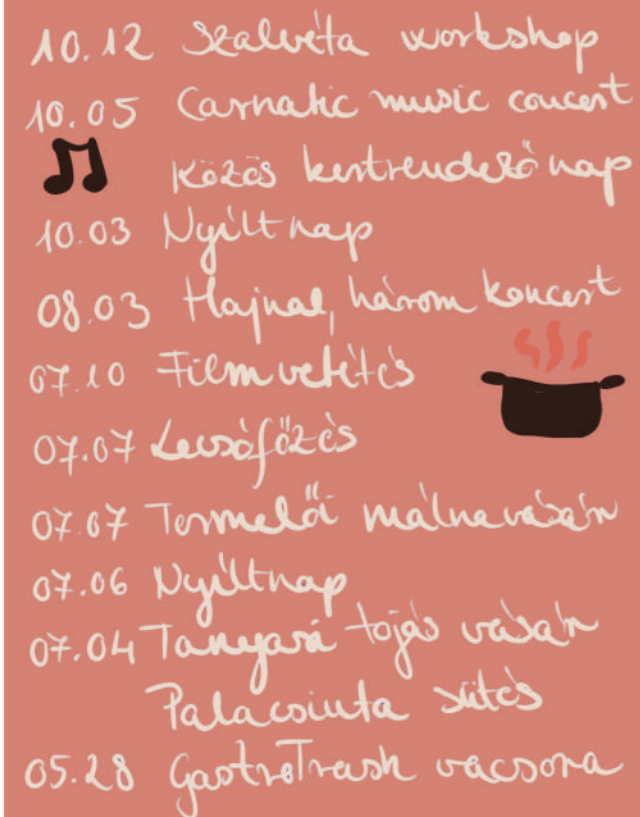 10.12 Szalvéta workshop
10.05 Carnatic music concert
Közös kertrendező nap
10.03 Nyílt nap
08.03 Hajnal, három koncert
07.10 Filmvetítés
07.07 Lecsófőzés
07.07 Termelői málnavásár
07.06 Nyíltnap
07.04 Tanyasi tojás vásár
Palacsinta sütés
05.28 GastroTrash vacsora